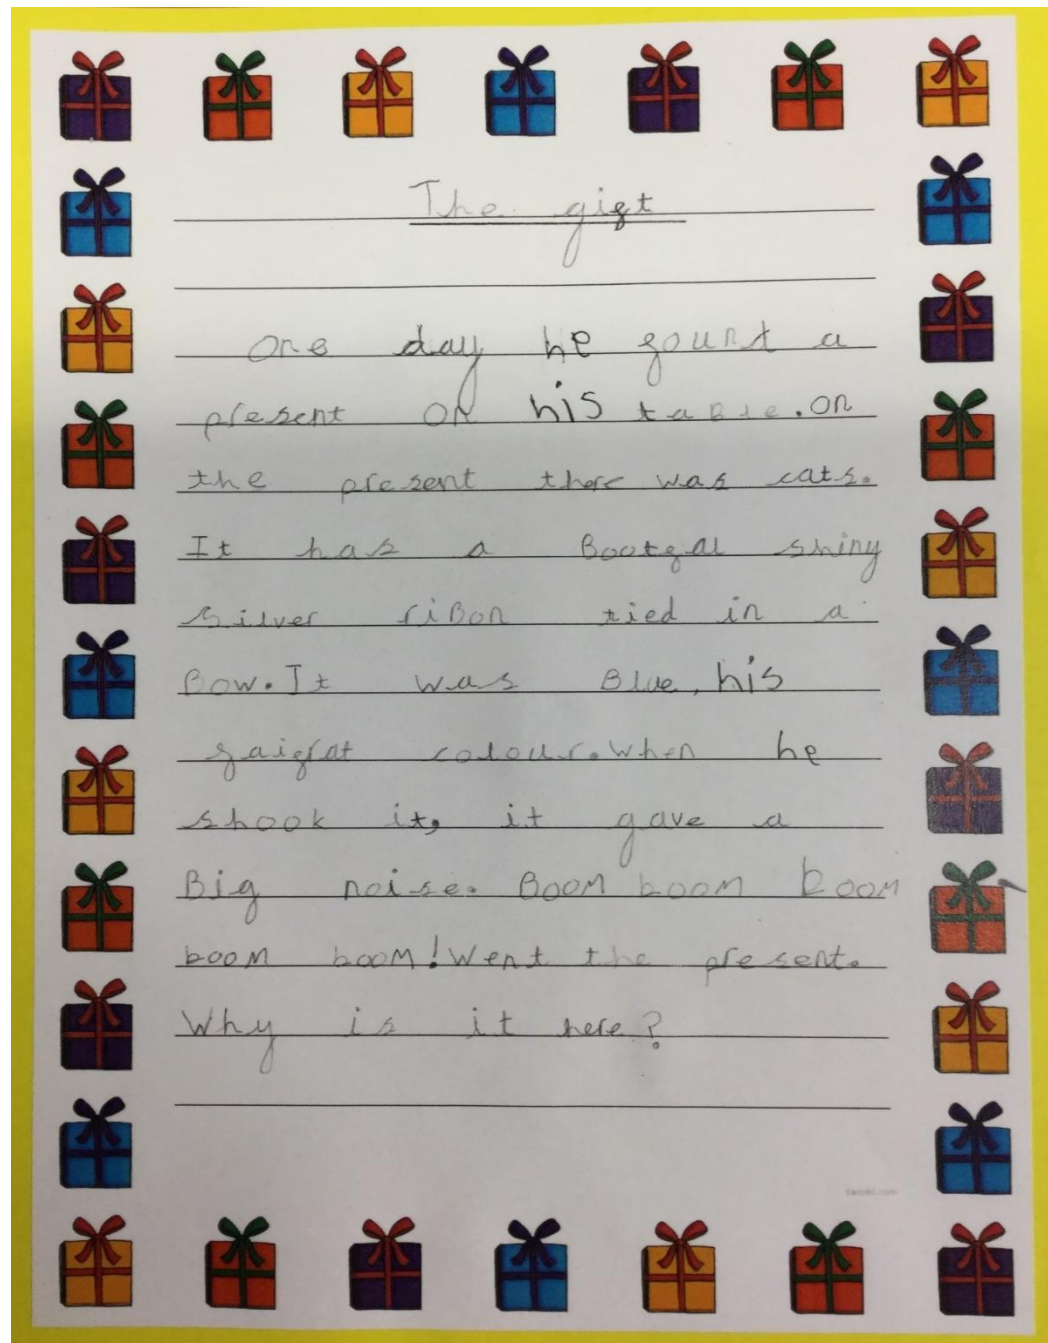 The gift
One day he fount a
present on his taBle. On
the present there was cats.
It has a Bootfal shiny
silver riBon tied in a
Bow. It was Blue, his
faifrat colour. When he
shook it, it gave a
Big noise. Boom boom boom
boom boom! Went the present.
Why is it here?
twinkl.com